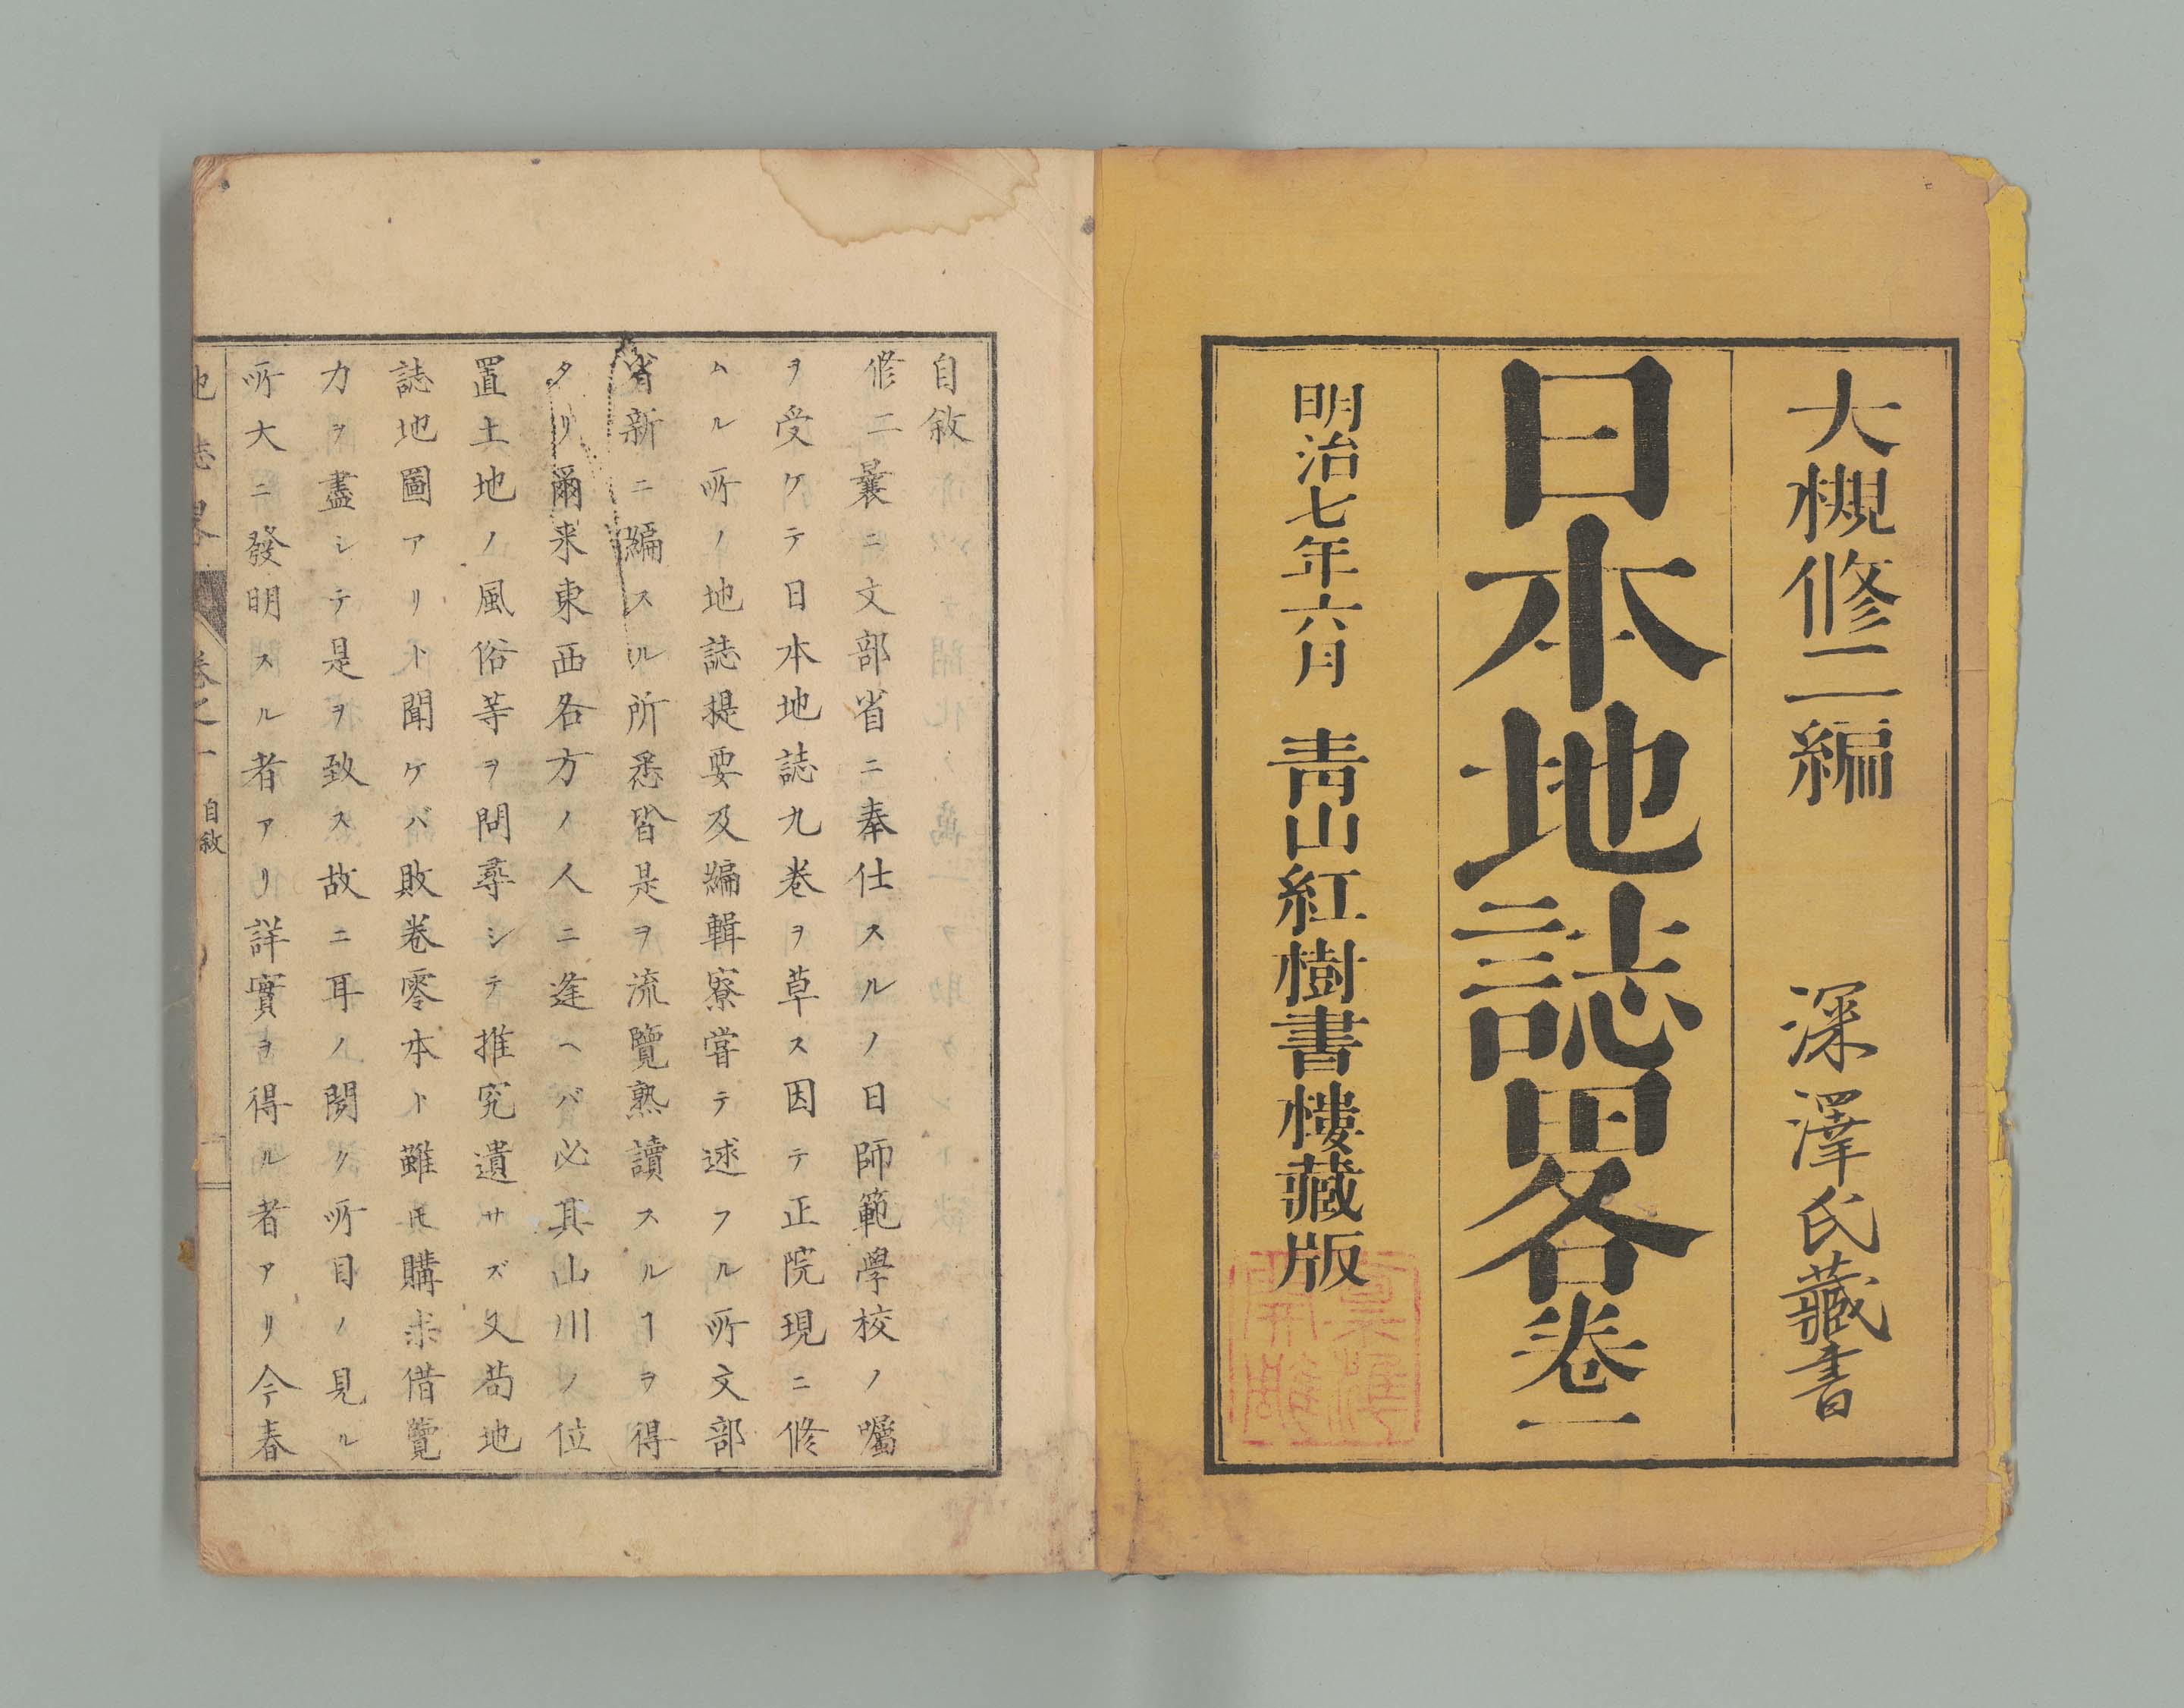 大槻修二編
深澤氏藏書
日本地誌畧卷一
明治七年六月 靑山紅樹書樓藏版
自敘
修二曩ニ文部省ニ奉仕スルノ日師範學校ノ囑
ヲ受ケテ日本地誌九卷ヲ草ス因テ正院現ニ修
ムル所ノ地誌提要及編輯寮嘗テ述フル所文部
省新ニ編スル所悉皆是ヲ流覽熟讀スルヿヲ得
タリ爾来東西各方ノ人ニ逢ヘバ必其山川ノ位
置土地ノ風俗等ヲ問尋シテ推究遺サズ又苟地
誌地圖アリト聞ケバ敗卷零本ト雖𪜈購求借覽
力ヲ盡シテ是ヲ致ス故ニ耳ノ聞ク所目ノ見ル
所大ニ發明スル者アリ詳實ヲ得ル者アリ今春
地誌畧 卷之一 自敘